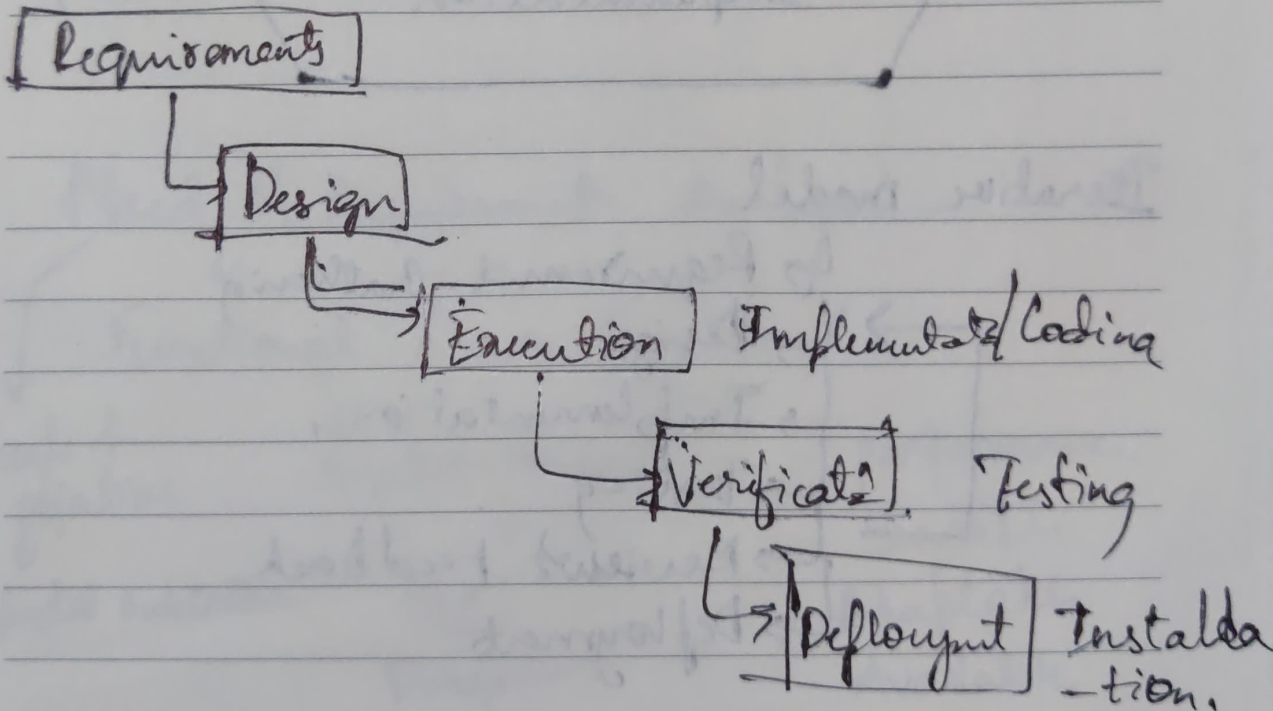 Requirements
Design
Execution Implementatn/Coding
Verificatn. Testing
Deployment Installa
-tion.